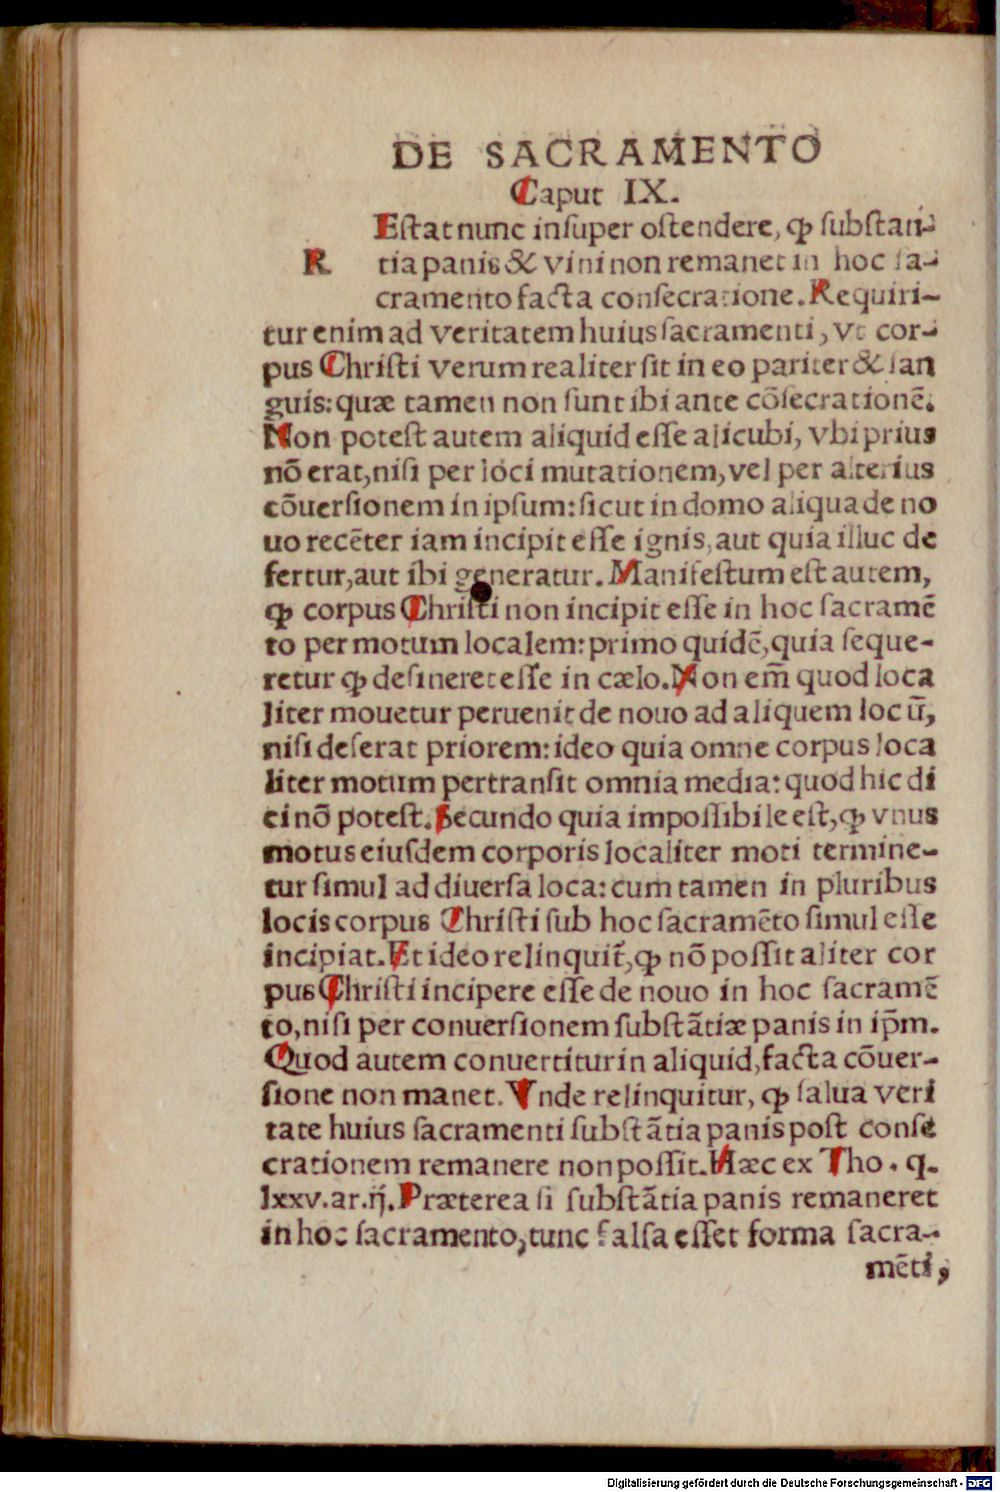 DE SACRAMENTO
Caput IX.
REstat nunc insuper ostendere, ꝙ substan-
tia panis & vini non remanet in hoc sa-
cramento facta consecratione. Requiri-
tur enim ad veritatem huius sacramenti, vt cor-
pus Christi verum realiter sit in eo pariter & san
guis: quæ tamen non sunt ibi ante cōsecrationē.
Non potest autem aliquid esse alicubi, vbi prius
nō erat, nisi per loci mutationem, vel per alterius
cōuersionem in ipsum: sicut in domo aliqua de no
uo recēter iam incipit esse ignis, aut quia illuc de
fertur, aut ibi generatur. Manifestum est autem,
ꝙ corpus Christi non incipit esse in hoc sacramē
to per motum localem: primo quidē, quia seque-
retur ꝙ desineret esse in cælo. Non em̄ quod loca
liter mouetur peruenit de nouo ad aliquem locū,
nisi deserat priorem: ideo quia omne corpus loca
liter motum pertransit omnia media: quod hic di
ci nō potest. Secundo quia impossibile est, ꝙ vnus
motus eiusdem corporis localiter moti termine-
tur simul ad diuersa loca: cum tamen in pluribus
locis corpus Christi sub hoc sacramēto simul esse
incipiat. Et ideo relinquit̃, ꝙ nō possit aliter cor
pus Christi incipere esse de nouo in hoc sacramē
to, nisi per conuersionem substātiæ panis in ip̄m.
Quod autem conuertitur in aliquid, facta cōuer-
sione non manet. Vnde relinquitur, ꝙ salua veri
tate huius sacramenti substātia panis post conse
crationem remanere non possit. Hæc ex Tho. q.
lxxv. ar. ij. Præterea si substātia panis remaneret
in hoc sacramento, tunc falsa esset forma sacra-
mēti,
Digitalisierung gefördert durch die Deutsche Forschungsgemeinschaft - DFG